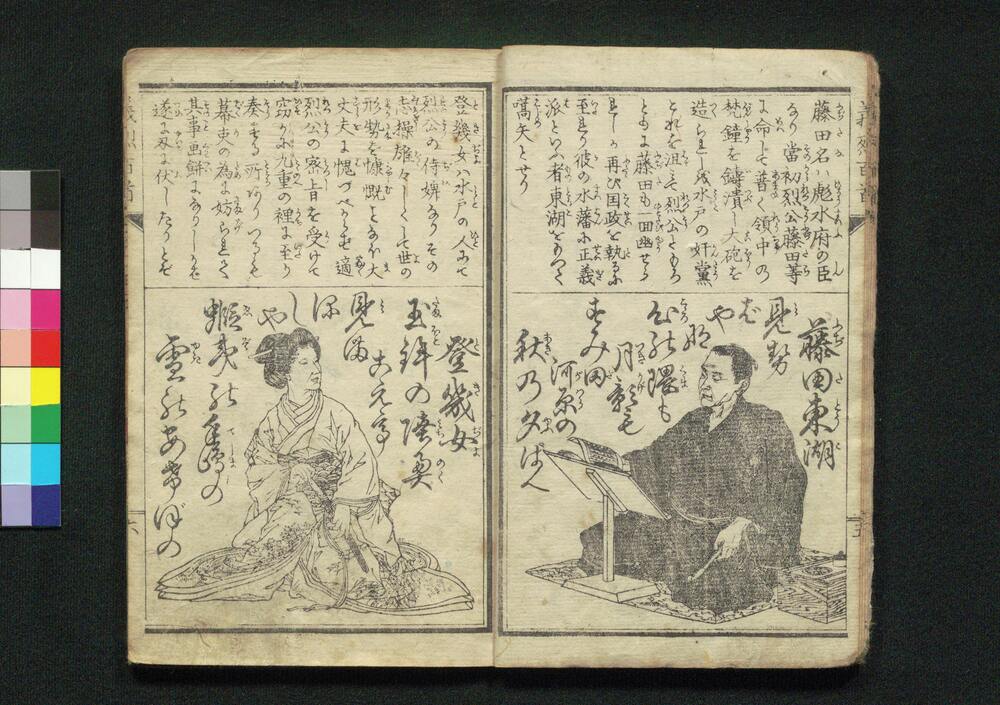 藤田名ハ彪水府の臣
なり當初烈公藤田等
に命して普く領中の
梵鐘を鋳潰し大砲を
造られしを水戸の奸黨
これを沮ミ烈公ともろ
ともに藤田も一回幽せら
れしが再び国政を執るに
至れり彼の水藩に正義
派といふ者東湖をもつて
嚆矢とせり
藤田東湖
見せ
ばや
な
心の隈も
月影も
すみ田
河原の
秋の夕ばへ
登幾女ハ水戸の人にて
烈公の侍婢なりその
志操雄々しくして世の
形勢を慷慨するや大
丈夫に愧づべからず適
烈公の密旨を受けて
窃かに九重の裡に至り
奏する所あり
幕吏の為に妨られて
其事画餅になりしかば
遂に刃に伏したりとぞ
登幾女
玉鉾の陸奥
こえて
見まほ
し
や
蝦夷の千嶋の
雪のあけぼの
五
六